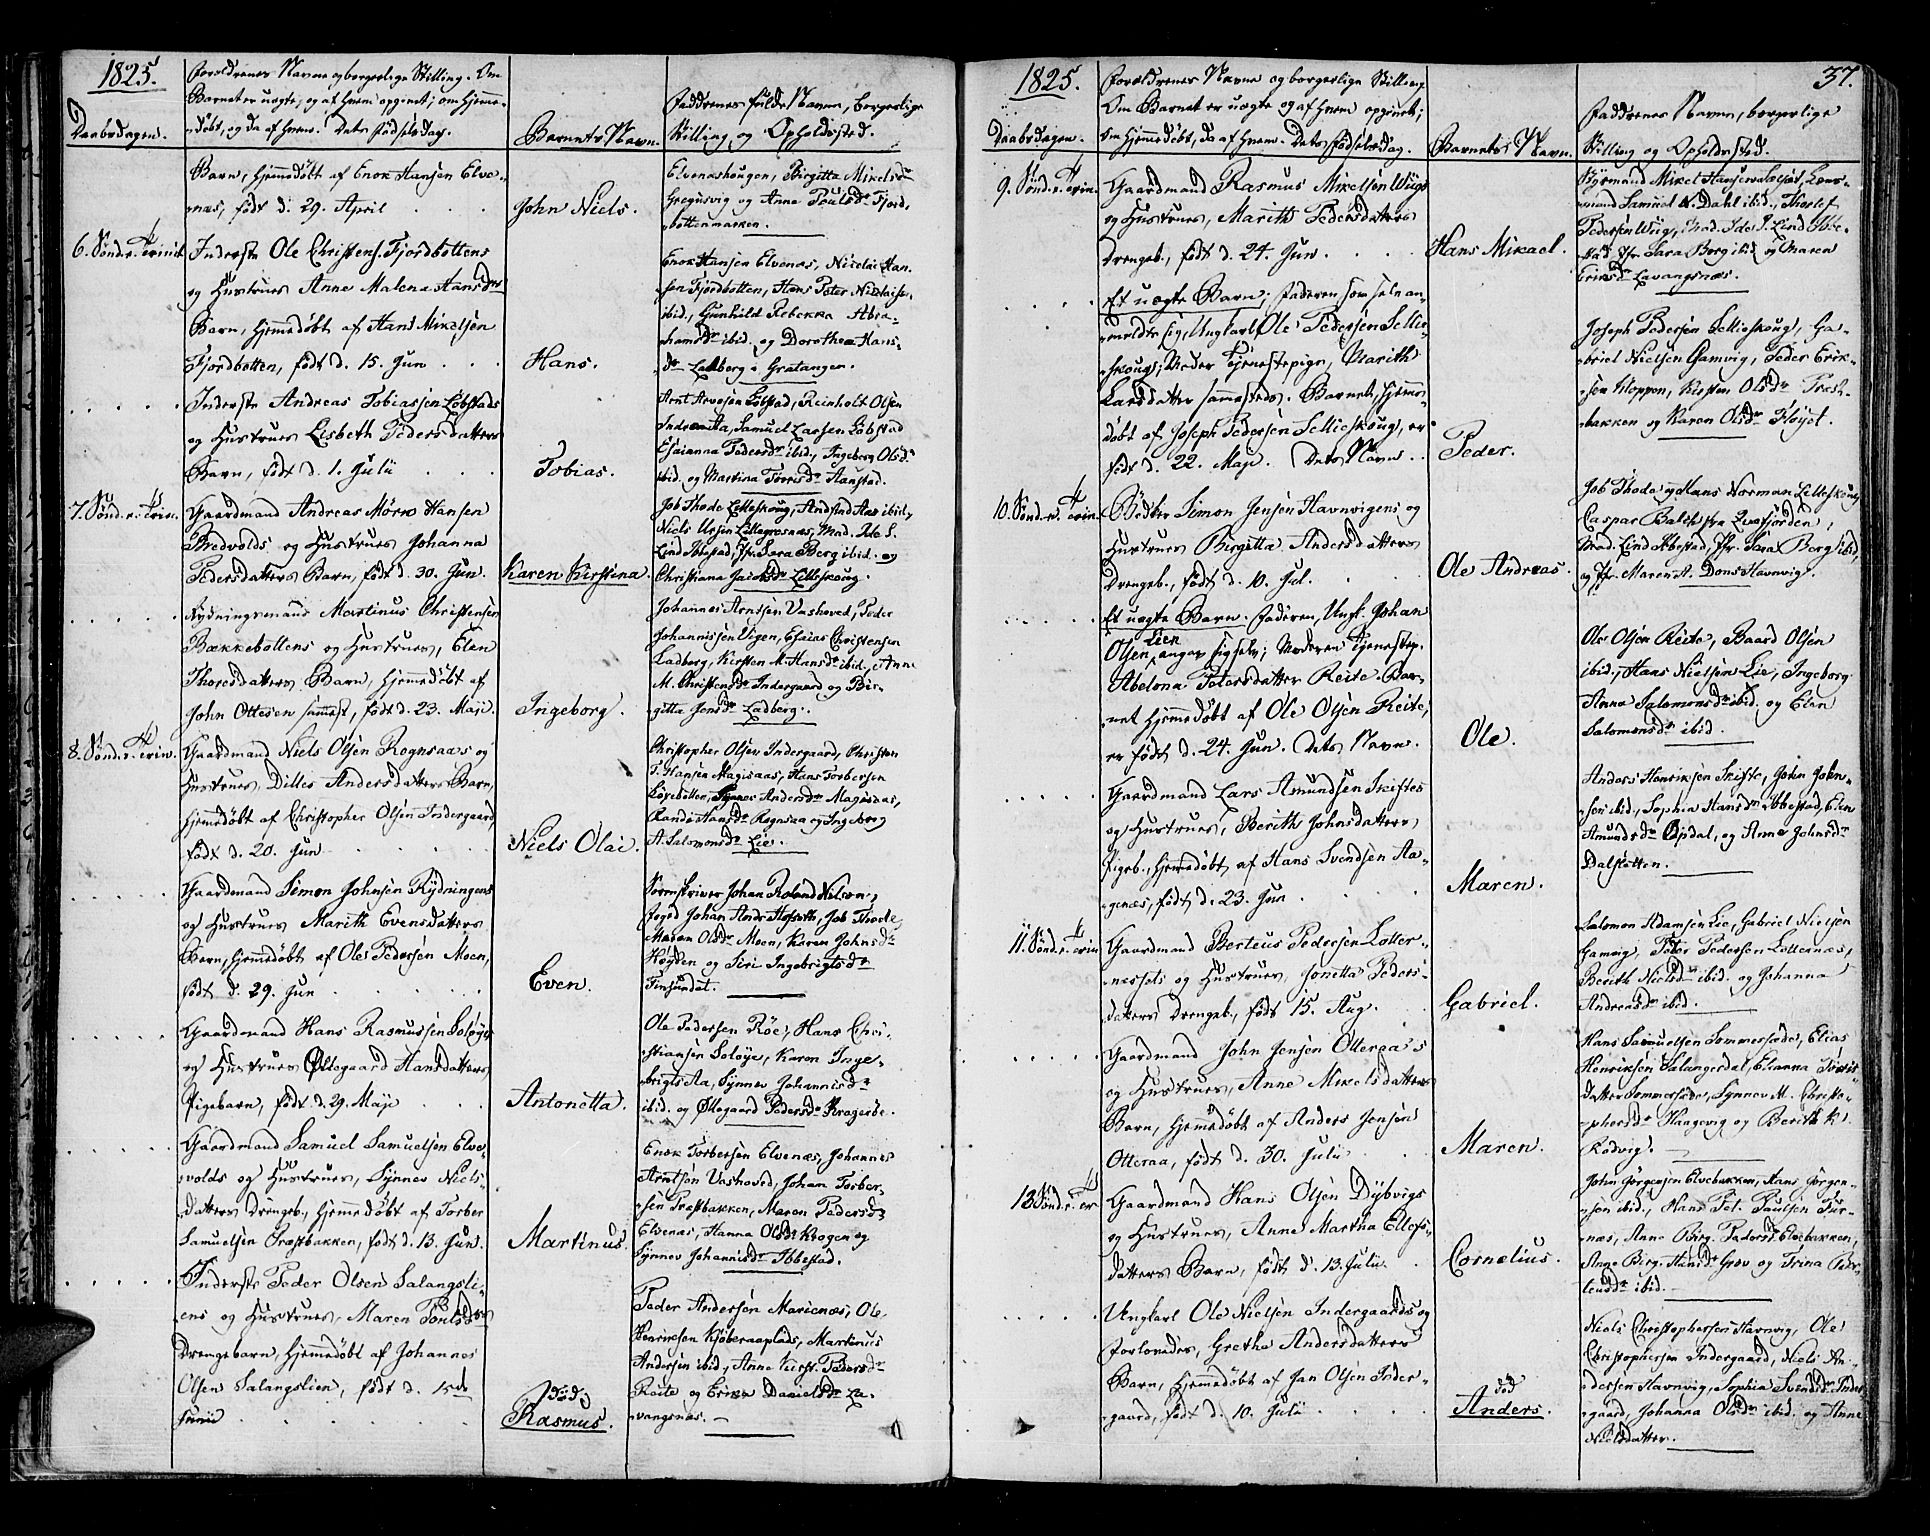 1825.
Daabsdagen.
Forældrenes Navne og borgerlige Stilling. Om
Barnet er uægte, og af hvem opgivet; om hjemme-
døbt, og da af hvem. Dets Fødselsdag.
Barnets Navn.
Faddrenes fulde Navne, borgerlige
Stilling og Opholdssted.
Barn, hjemmedøbt af Enok Hansen Elve-
næs, født d. 29. April
John Niels.
Elveneshougen, Birgitta Mikelsd.
Gregusvig og Anne Poulsdr Fjord-
bottenmarken.
6. Sønd. e. Trinit.
Inderste Ole Christens. Fjordbottens
og Hustrues Anne Malena Hansdrs
Barn, hjemmedøbt af Hans Mikelsen
Fjordbotten, født d. 15. Jun
Hans.
Enok Hansen Elvenæs, Nicolai Han-
sen Fjordbotten, Hans Peter Nicolaisen
ibid., Gunhild Rebekka Abra-
hamsdr ibid. og Dorothea Hans-
dr Ladberg i Gratangen.
Inderste Andreas Tobiassen Løbstads
og Hustrues Lisbeth Pedersdatters
Barn, født d. 1. Juli
Tobias.
Arnt Arnesen Løbstad, Reinholt Olsen
Indre Aa, Samuel Larsen Løbstad
Esaianna Pedersdr ibid., Ingeborg Olsd.
ibid. og Martina Torrisdr Aanstad.
7. Sønd. e. Trin.
Gaardmand Andreas Mörk Hansen
Bredvolds og Hustrues Johanna
Pedersdatters Barn, født d. 30. Jun.
Karen Kirstina
Job Thode Lilleskoug, And. And. Aas ibid.,
Niels Ursin Lillegrosnæs, Mad. Ide S.
Lind Ibbestad, Jfr. Sara Berg ibid. og
Christiana Jacobsdr Lilleskoug.
Rydningsmand Martinus Christensen
Bækkebottens og Hustrues, Elen
Thoresdatters Barn, hjemmedøbt af
John Ottesen sammest., født d. 23. Maje.
Ingeborg.
Johannes Arntsen Vashoved, Peder
Johannissen Vigen, Esaias Christensen
Ladberg, Kirsten M. Hansdr ibid., Anne
M. Christensdr Indergaard og Bir-
gitta Jensdr Ladberg.
8. Sønd. e. Trin.
Gaardmand Niels Olsen Rognsaas og
Hustrues, Dilles Andersdatters Barn,
hjemmedøbt af Christopher Olsen Indergaard,
født d. 20. Jun
Niels Olai.
Christopher Olsen Indergaard, Christen
T. Hansen Magisaas, Hans Torbersen
Synnev Andersdr Magisaas,
Rande Hansdr Rognsaa og Ingeborg
A. Salomonsdr Lie.
Gaardmand Simon Johnsen Rydningens
og Hustrues Marith Evensdatters
Barn, hjemmedøbt af Ole Pedersen Moen,
født d. 29. Jun
Even.
Sorenskriver Johan Roland Nilson,
Foged Johan Andr. Hofseth, Job Thode,
Maren Olsdr Moen, Karen Johnsdr
Høyden og Siri Ingebrigtsdr
Finsundet.
Gaardmand Hans Rasmussen Soløys
og Hustrues Øllegaard Hansdatters
Pigebarn, født d. 29. Maje
Antonetta.
Ole Pedersen Röe, Hans Chri-
stiansen Soløye, Karen Inge-
brigts Aa, Synnev Johannisdr
ibid. og Øllegaard Pedersdr Kragerøe.
Gaardmand Samuel Samuelsen Elve-
volds og Hustrues, Synnev Niels-
datters Drengeb., hjemmedøbt af Torber
Samuelsen Præstbakken, født d. 13. Jun.
Martinus.
Enok Torbersen Elvenæs, Johannes
Arntsen Vashoved, Johan Torber-
sen Præstbakken, Maren Pedersdr
Elvenæs, Hanna Olsdr Krogen og
Synnev Johannisdr Ibbestad.
Inderste Peder Olsen Salangsli-
ens og Hustrues, Maren Poulsdrs
Drengebarn, hjemmedøbt af Johannes
Olsen Salangslien, født d. 15de
Junii
død
Rasmus.
Peder Andersen Marienæs, Ole
Henriksen Kjøberaaplads, Martinus
Andersen ibid., Anne Kirst. Pedersdr
Reite og Erika Danielsdr La-
vangsnæs.
1825.
37.
Daabsdagen.
Forældrenes Navne og borgerlige Stilling
Om Barnet er uægte og af hvem opgivet;
om hjemmedøbt, da af hvem. Dets Fødselsdag.
Barnets Navn.
Faddrenes Navne, borgerlige
Stilling og Opholdssted.
9. Sønd. e. Trin.
Gaardmand Rasmus Mikelsen Wiigs
og Hustrues, Marith Pedersdatters
Drengeb., født d. 24. Jun.
Hans Mikael.
Styrmand Mikel Hansen, Lens-
mand Sammel A. Dahl ibid., Thislef
Pedersen Wiig, Mad. Ide S. Lind Ibbe-
stad, Jfr. Sara Berg ibid. og Maren
Eriksdr Lavangsnæs.
Et uægte Barn; Faderen som selv an-
meldte sig, Ungkarl Ole Pedersen Lillie-
skoug; Moder Tjenestepige, Marith
Larsdatter sammesteds. Barnet, hjemme-
døbt af Joseph Pedersen Lillieskoug, er
født d. 22. Maje. Dets Navn
Peder.
Joseph Pedersen Lillieskoug, Ga-
briel Nielsen Gamvig, Peder Erik-
sen Kloppen, Kirsten Olsdr Præst-
bakken og Karen Olsdr Fløyet.
10. Sønd. e. Trin.
Bødker Simon Jensen Havnvigens og
Hustrues Birgitta Andersdatters
Drengeb., født d. 10. Jul.
Ole Andreas.
Job Thode og Hans Norman Lilleskoug,
Caspar Balchstra Qvæfjorden,
Mad. Lind Ibbestad, Jfr. Sara Berg ibid,
og Jfr. Maren A. Dons Havnvig.
Et uægte Barn. Faderen, Ungk. Johan
Olsen Lien, angav sig selv; Moderen Tjenestep.
Abelona Petersdatter Reite. Bar-
net hjemmedøbt af Ole Olsen Reite,
er født d. 24. Jun. Dets Navn.
Ole.
Ole Olsen Reite, Baard Olsen
ibid., Hans Nielsen Lie, Ingeborg
Anna Salomonsdr ibid. og Elen
Salomonsdr ibid.
Gaardmand Lars Amundsen Skiftes
og Hustrues, Berith Johnsdatters
Pigeb., hjemmedøbt af Hans Svendsen Aa-
genæs, født d. 23. Jun
Maren.
Anders Henriksen Skifte, John John-
sen ibid., Sophia Hansdr Ibbestad, Elen
Amundsdr Opdal, og Anne Johnsdr
Dalsletten.
11. Sønd. e. Trin
Gaardmand Berteus Pedersen Lotter-
næssets og Hustrues, Jonetta Peders-
datters Drengeb., født 15. Aug.
Gabriel.
Salomon Adamsen Lie, Gabriel Nielsen
Gamvig, Peter Pedersen Lotternæs,
Berith Nielsdr ibid. og Johanna
Andreasdr ibid.
Gaardmand John Jensen Otteraa's
og Hustrues, Anne Mikelsdatters
Barn, hjemmedøbt af Anders Jensen
Otteraa, født d. 30. Juli
Maren.
Hans Samuelsen Sommersæde, Elias
Henriksen Salangsdal, Elianna Torris-
datter Sommersæde, Synnev M. Christo-
phersdr Hangevig og Berith K.
Rødvig.
13. Sønd. e. Tr
Gaardmand Hans Olsen Dybvigs
og Hustrues, Anne Martha Ellefs-
datters Barn, født d. 13. Juli.
Cornelius.
John Jørgensen Elvebakken, Hans Jørgen-
sen ibid., Hans Pet. Paulsen Fur-
næs, Anne Birg. Pedersd. Elvebakken,
Anne Birg. Hansdr Grov og Trina Peder-
ibid.
Ungkarl Ole Nielsen Indergaards og
Forlovedes, Grethe Andersdatters
Barn, hjemmedøbt af Jan Olsen Inder-
gaard, født d. 10. Juli
død
Anders.
Niels Christophersen Havnvig, Ole
Christophersen Indergaard, Niels An-
dersen Havnvig, Sophia Svendsdr Inder-
gaard, Johanna Olsdr ibid. og Anne
Nielsdatter.